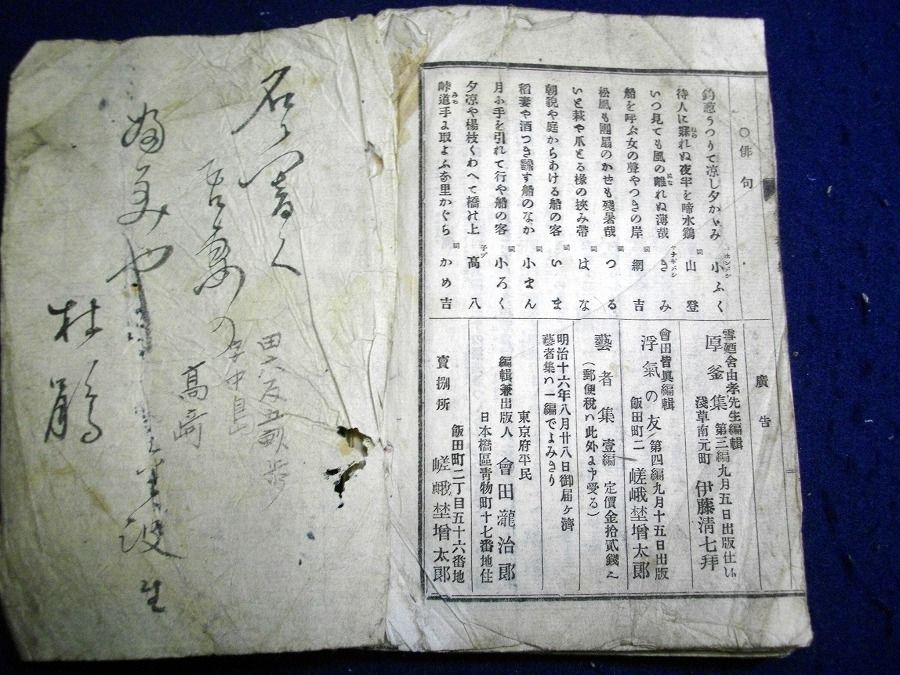 ○俳句
釣荵うつりて凉し夕かゞみ 小ふく
待人に寐れぬ夜半を啼水鶏 山登
いつ見ても風の離れぬ薄哉 きみ
船を呼ふ女の聲やつきの岸 綱吉
松風も團扇のかせも残暑哉 つる
いと萩や爪とる椽の挾み帶 はな
朝㒵や庭からあける船の客 いま
稲妻や酒つき飜す船のなか 小まん
月に手を引れて行や船の客 小ろく
夕凉や楊枝くわへて橋の上 高八
峠道手に取よふな里かぐら かめ吉
廣告
雪廼舍由孝先生編輯
厚釜集 第三編九月五日出版仕候
淺草南元町 伊藤清七拜
會田皆眞編輯
浮氣の友 第四編九月十五日出版
飯田町二 嵯峨埜增太郎
藝者集 壹編 定價金拾貳錢
(郵便税ハ此外に申受る)
明治十六年八月廿八日御届ケ濟
藝者集ハ一編でよみきり
東京府平民
編輯兼出版人 會田瀧治郎
日本橋區靑物町十七番地住
賣捌所 飯田町二丁目五十六番地
嵯峨埜增太郎
高崎
杜鵑